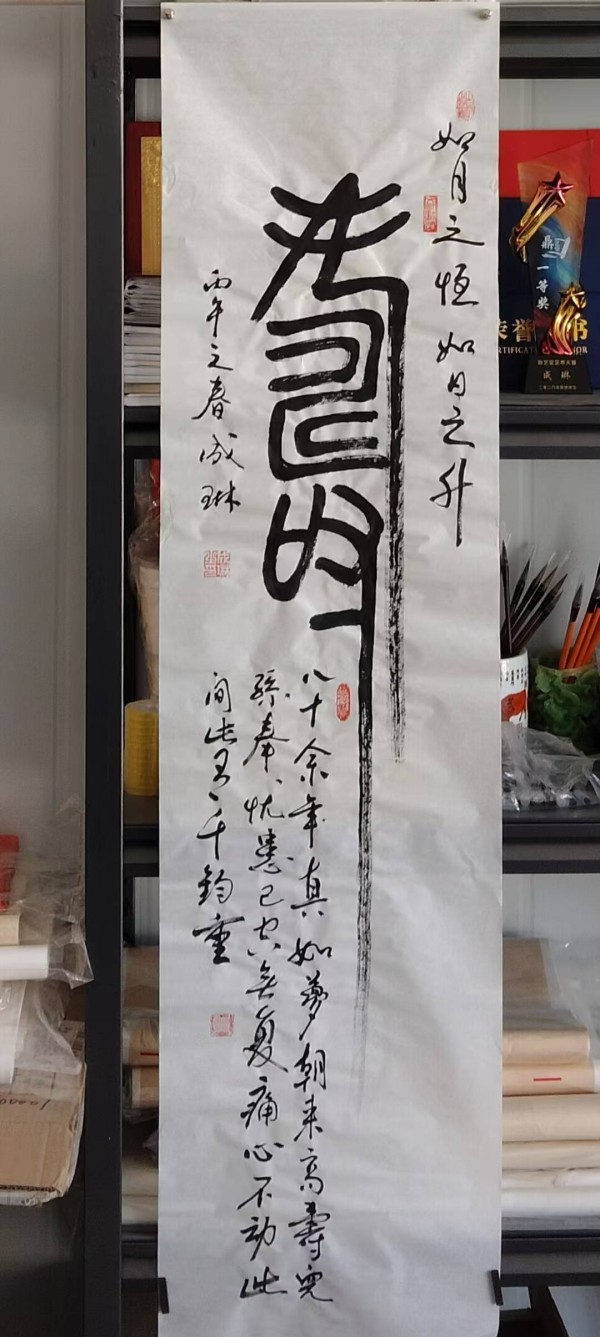 如月之恒如日之升
壽
丙午之春成琳
八十余年真如夢朝来高壽兒
孫奉忧患已空無复痛心不动此
间千鈞重
一等奖
成琳
荣誉 书